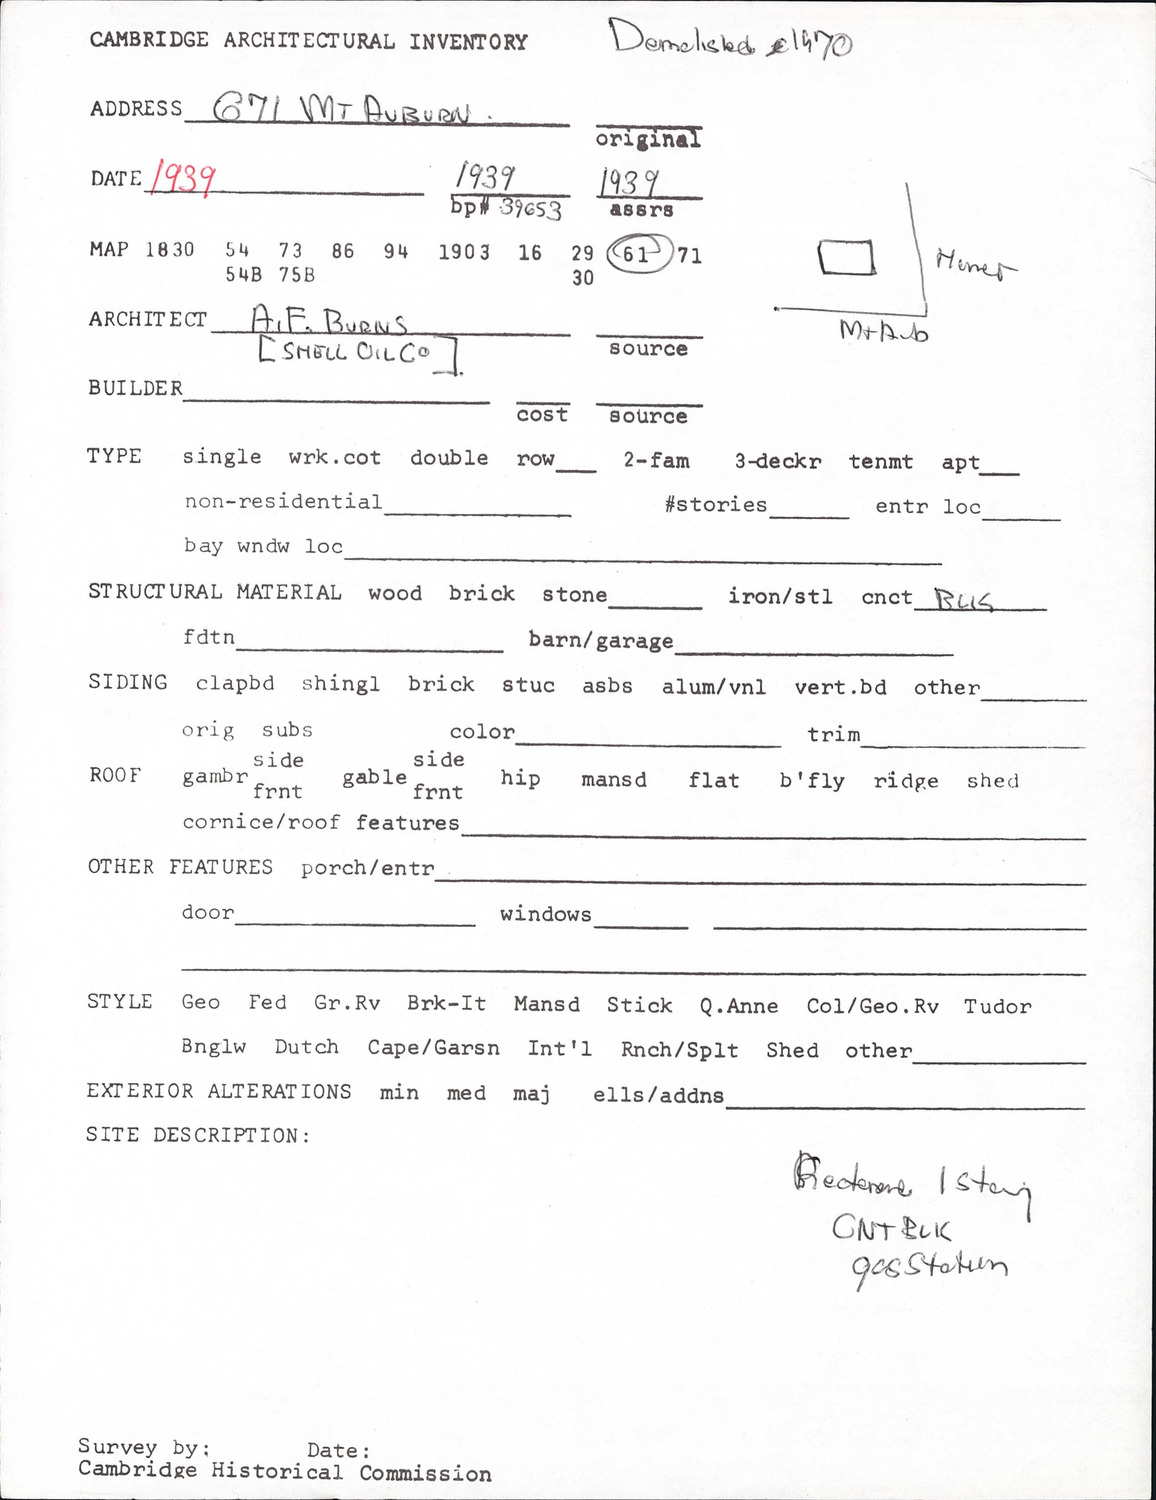 CAMBRIDGE ARCHITECTURAL INVENTORY Demolished c1970
ADDRESS 671 MT AUBURN.
original
DATE 1939 1939 1939
bp# 39653 assrs
MAP 1830 54 73 86 94 1903 16 29 61 71
54B 75B 30
ARCHITECT A.F. BURNS
[SHELL OIL CO]. source
Mt Aub
BUILDER
cost source
TYPE single wrk.cot double row 2-fam 3-deckr tenmt apt
non-residential #stories entr loc
bay wndw loc
STRUCTURAL MATERIAL wood brick stone iron/stl cnct BLK
fdtn barn/garage
SIDING clapbd shingl brick stuc asbs alum/vnl vert.bd other
orig subs color trim
side side
ROOF gambr gable hip mansd flat b'fly ridge shed
frnt frnt
cornice/roof features
OTHER FEATURES porch/entr
door windows
STYLE Geo Fed Gr.Rv Brk-It Mansd Stick Q.Anne Col/Geo.Rv Tudor
Bnglw Dutch Cape/Garsn Int'l Rnch/Splt Shed other
EXTERIOR ALTERATIONS min med maj ells/addns
SITE DESCRIPTION:
1 Story
CNT BLK
gas Station
Survey by: Date:
Cambridge Historical Commission